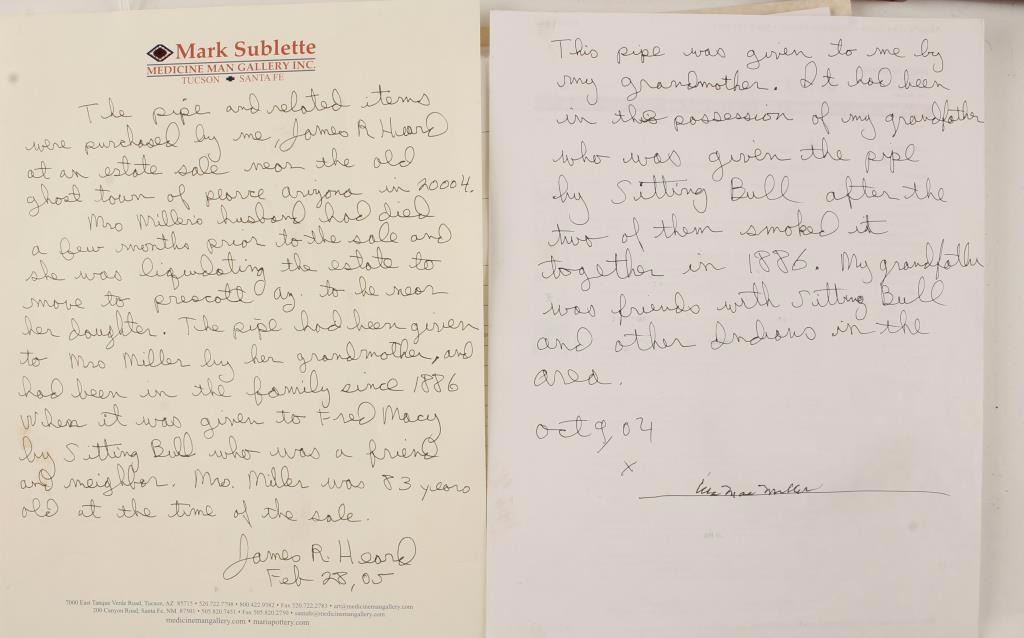 Mark Sublette
MEDICINE MAN GALLERY INC.
TUCSON SANTA FE
The pipe and related items
were purchased by me, James R Heard
at an estate sale near the old
ghost town of pearce arizona in 20004.
Mrs Miller's husband had died
a few months prior to the sale and
she was liquidating the estate to
move to prescott az. to be near
her daughter. The pipe had been given
to Mrs Miller by her grandmother, and
had been in the family since 1886
When it was given to Fred Macy
by Sitting Bull who was a friend
and neighbor. Mrs. Miller was 83 years
old at the time of the sale.
James R. Heard
Feb 28, 05
7000 East Tanque Verde Road, Tucson, AZ 85715 • 520.722.7798 • 800.422.9382 • Fax 520.722.2783 • art@medicinemangallery.com
200 Canyon Road, Santa Fe, NM 87501 • 505.820.7451 • Fax 505.820.2750 • santafe@medicinemangallery.com
medicinemangallery.com • mariapottery.com
This pipe was given to me by
my grandmother. It had been
in the possession of my grandfather
who was given the pipe
by Sitting Bull after the
two of them smoked it
together in 1886. My grandfather
was friends with Sitting Bull
and other Indians in the
area.
oct 9, 04
x
Mae Miller